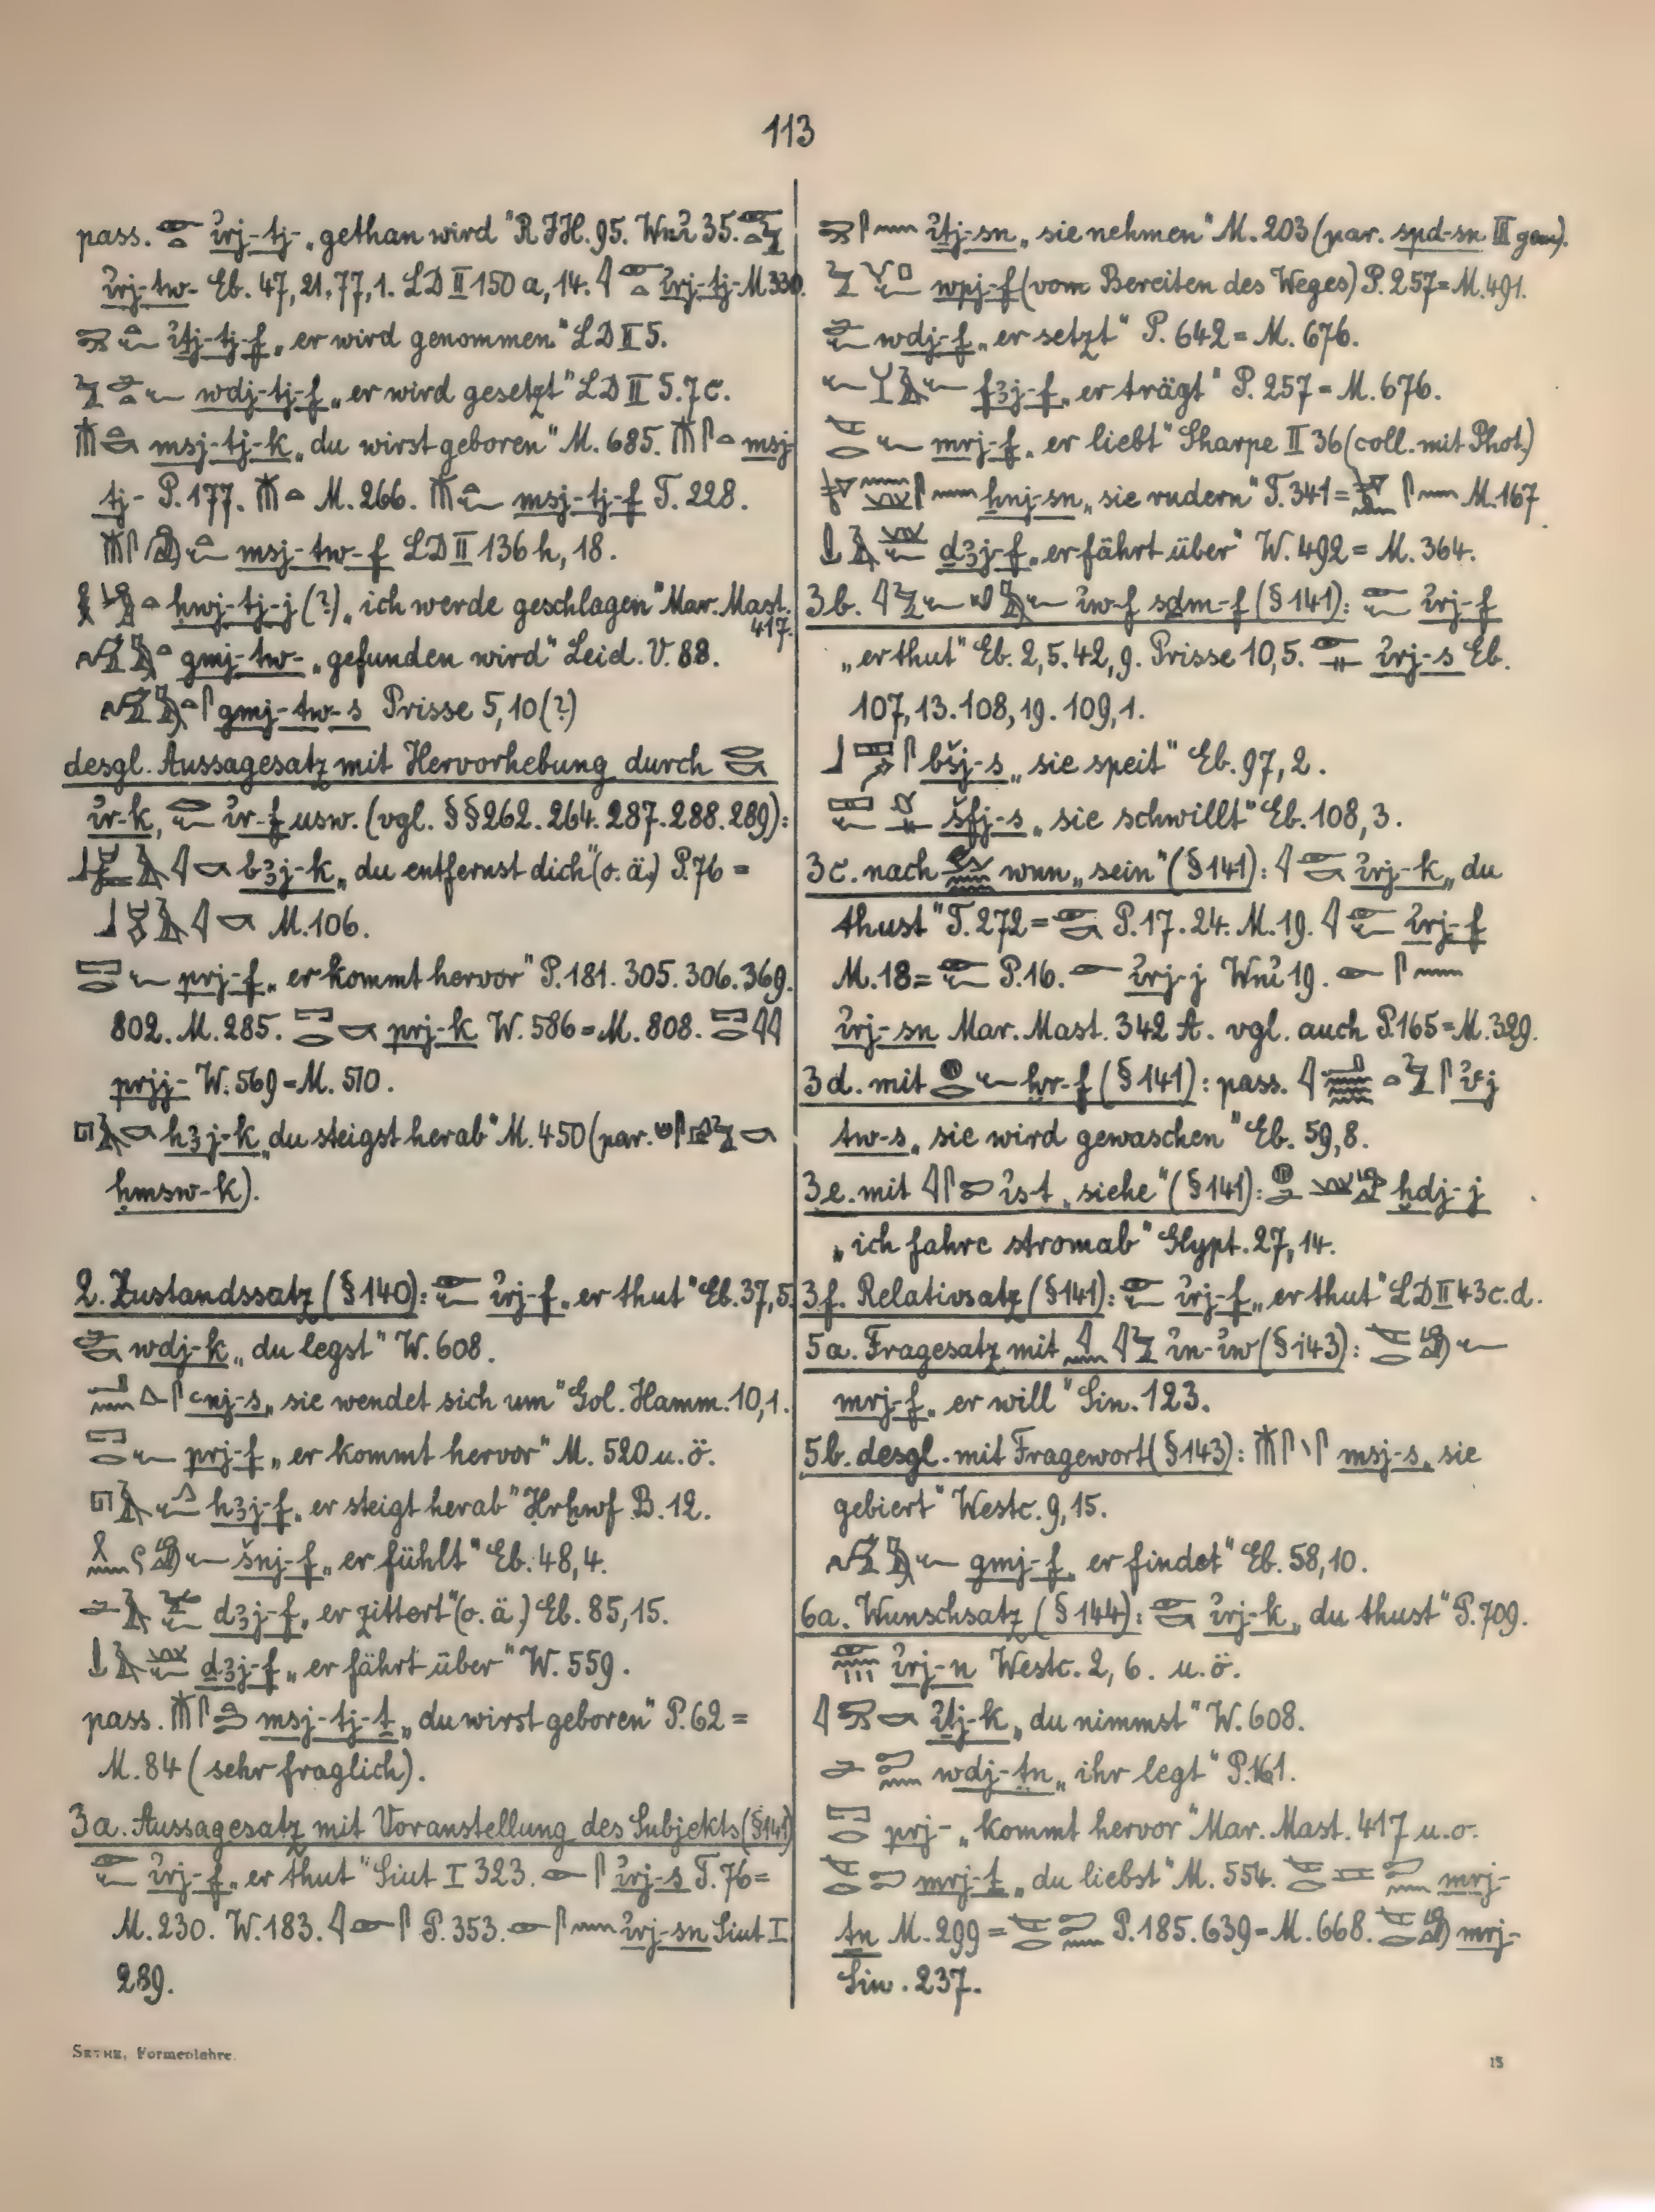 113
pass. 𓁹𓏏 ı͗rj-tj- „gethan wird" R JH. 95. Wnı͗ 35.
ı͗rj-tw- Eb. 47, 21. 77, 1. LD II 150 a, 14. ı͗rj-tj- M 330.
ı͗tj-tj-f „er wird genommen" LD II 5.
wdj-tj-f „er wird gesetzt" LD II 5. 7c.
msj-tj-k „du wirst geboren" M. 685. 𓄟𓋴𓏏 msj-
tj- P. 177. 𓄟𓏏 M. 266. 𓄟𓏏𓆑 msj-tj-f T. 228.
msj-tw-f LD II 136 h, 18.
ḥwj-tj-j (?) „ich werde geschlagen" Mar. Mast.
417.
gmj-tw- „gefunden wird" Leid. V. 88.
gmj-tw-s Prisse 5, 10 (?)
desgl. Aussagesatz mit Hervorhebung durch 𓂋𓎡
ı͗r-k, 𓂋𓆑 ı͗r-f usw. (vgl. §§ 262. 264. 287. 288. 289):
bꜣj-k „du entfernst dich" (o. ä.) P. 76 =
M. 106.
𓉐𓂋𓆑 prj-f „er kommt hervor" P. 181. 305. 306. 369.
802. M. 285. 𓉐𓂋𓎡 prj-k W. 586 = M. 808. 𓉐𓂋𓇋𓇋
prjj- W. 569 = M. 510.
𓉔𓄿𓎡 hꜣj-k „du steigst herab" M. 450 (par.
ḥmsw-k).
2. Zustandssatz (§ 140): 𓁹𓆑 ı͗rj-f „er thut" Eb. 37, 5.
wdj-k „du legst" W. 608.
ꜥnj-s „sie wendet sich um" Gol. Hamm. 10, 1.
𓉐𓂋𓆑 prj-f „er kommt hervor" M. 520 u. ö.
𓉔𓄿𓆑𓂻 hꜣj-f „er steigt herab" Ḥrḫwf B. 12.
šnj-f „er fühlt" Eb. 48, 4.
dꜣj-f „er zittert" (o. ä.) Eb. 85, 15.
ḏꜣj-f „er fährt über" W. 559.
pass. 𓄟𓋴𓏏𓍿 msj-tj-ṯ „du wirst geboren" P. 62 =
M. 84 (sehr fraglich).
3a. Aussagesatz mit Voranstellung des Subjekts (§ 141)
𓁹𓆑 ı͗rj-f „er thut" Siut I 323. 𓁹𓋴 ı͗rj-s T. 76 =
M. 230. W. 183. 𓇋𓁹𓋴 P. 353. 𓁹𓋴𓈖 ı͗rj-sn Siut I
289.
ı͗tj-sn „sie nehmen" M. 203 (par. spd-sn III gem.).
wpj-f (vom Bereiten des Weges) P. 257 = M. 491.
wdj-f „er setzt" P. 642 = M. 676.
fꜣj-f „er trägt" P. 257 = M. 676.
mrj-f „er liebt" Sharpe II 36 (coll. mit Phot.)
ḫnj-sn „sie rudern" T. 341 = M. 167.
ḏꜣj-f „er fährt über" W. 492 = M. 364.
3b. ı͗w-f sḏm-f (§ 141): 𓁹𓆑 ı͗rj-f
„er thut" Eb. 2, 5. 42, 9. Prisse 10, 5. 𓁹𓊃 ı͗rj-s Eb.
107, 13. 108, 19. 109, 1.
bšj-s „sie speit" Eb. 97, 2.
šfj-s „sie schwillt" Eb. 108, 3.
3c. nach wnn „sein" (§ 141): 𓇋𓁹𓎡 ı͗rj-k „du
thust" T. 272 = 𓁹𓎡 P. 17. 24. M. 19. 𓇋𓁹𓆑 ı͗rj-f
M. 18 = 𓁹𓆑 P. 16. 𓁹 ı͗rj-j Wnı͗ 19. 𓁹𓋴𓈖
ı͗rj-sn Mar. Mast. 342 A. vgl. auch P. 165 = M. 329.
3d. mit 𓐍𓂋𓆑 ḫr-f (§ 141): pass. ı͗ꜥj
tw-s „sie wird gewaschen" Eb. 59, 8.
3e. mit 𓇋𓋴𓍿 ı͗s-ṯ „siehe" (§ 141): ḫdj-j
„ich fahre stromab" Glypt. 27, 14.
3f. Relativsatz (§ 141): 𓁹𓆑 ı͗rj-f „er thut" LD II 43 c. d.
5a. Fragesatz mit 𓇋𓈖 𓇋𓅱 ı͗n-ı͗w (§ 143):
mrj-f „er will" Sin. 123.
5b. desgl. mit Fragewort (§ 143): msj-s „sie
gebiert" Westc. 9, 15.
gmj-f „er findet" Eb. 58, 10.
6a. Wunschsatz (§ 144): 𓁹𓎡 ı͗rj-k „du thust" P. 709.
ı͗rj-n Westc. 2, 6. u. ö.
ı͗tj-k „du nimmst" W. 608.
wdj-ṯn „ihr legt"
𓉐𓂋 prj- „kommt hervor" Mar. Mast. 417 u. o.
mrj-ṯ „du liebst" M. 554. mrj-
ṯn M. 299 = P. 185. 639 = M. 668. mrj-
Sin. 237.
SETHE, Formenlehre.
15